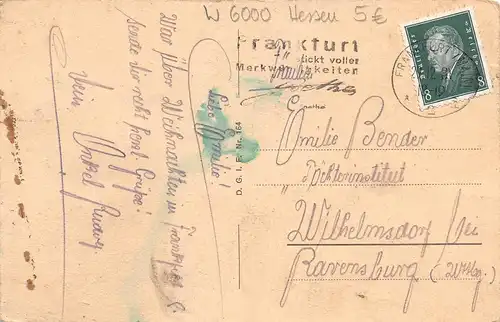 W 6000 Hessen 5 €
Frankfurt
steckt voller
Merkwürdigkeiten
FRANKFURT
Deutsches Reich
8 8
Liebe Emilie!
War über Weihnachten in Frankfurt &
sende dir recht herzl. Grüsse!
Dein Onkel
D. G. I. F. Nr. 164
Emilie Bender
Töchterinstitut
Wilhelmsdorf bei
Ravensburg (Wttbg.)